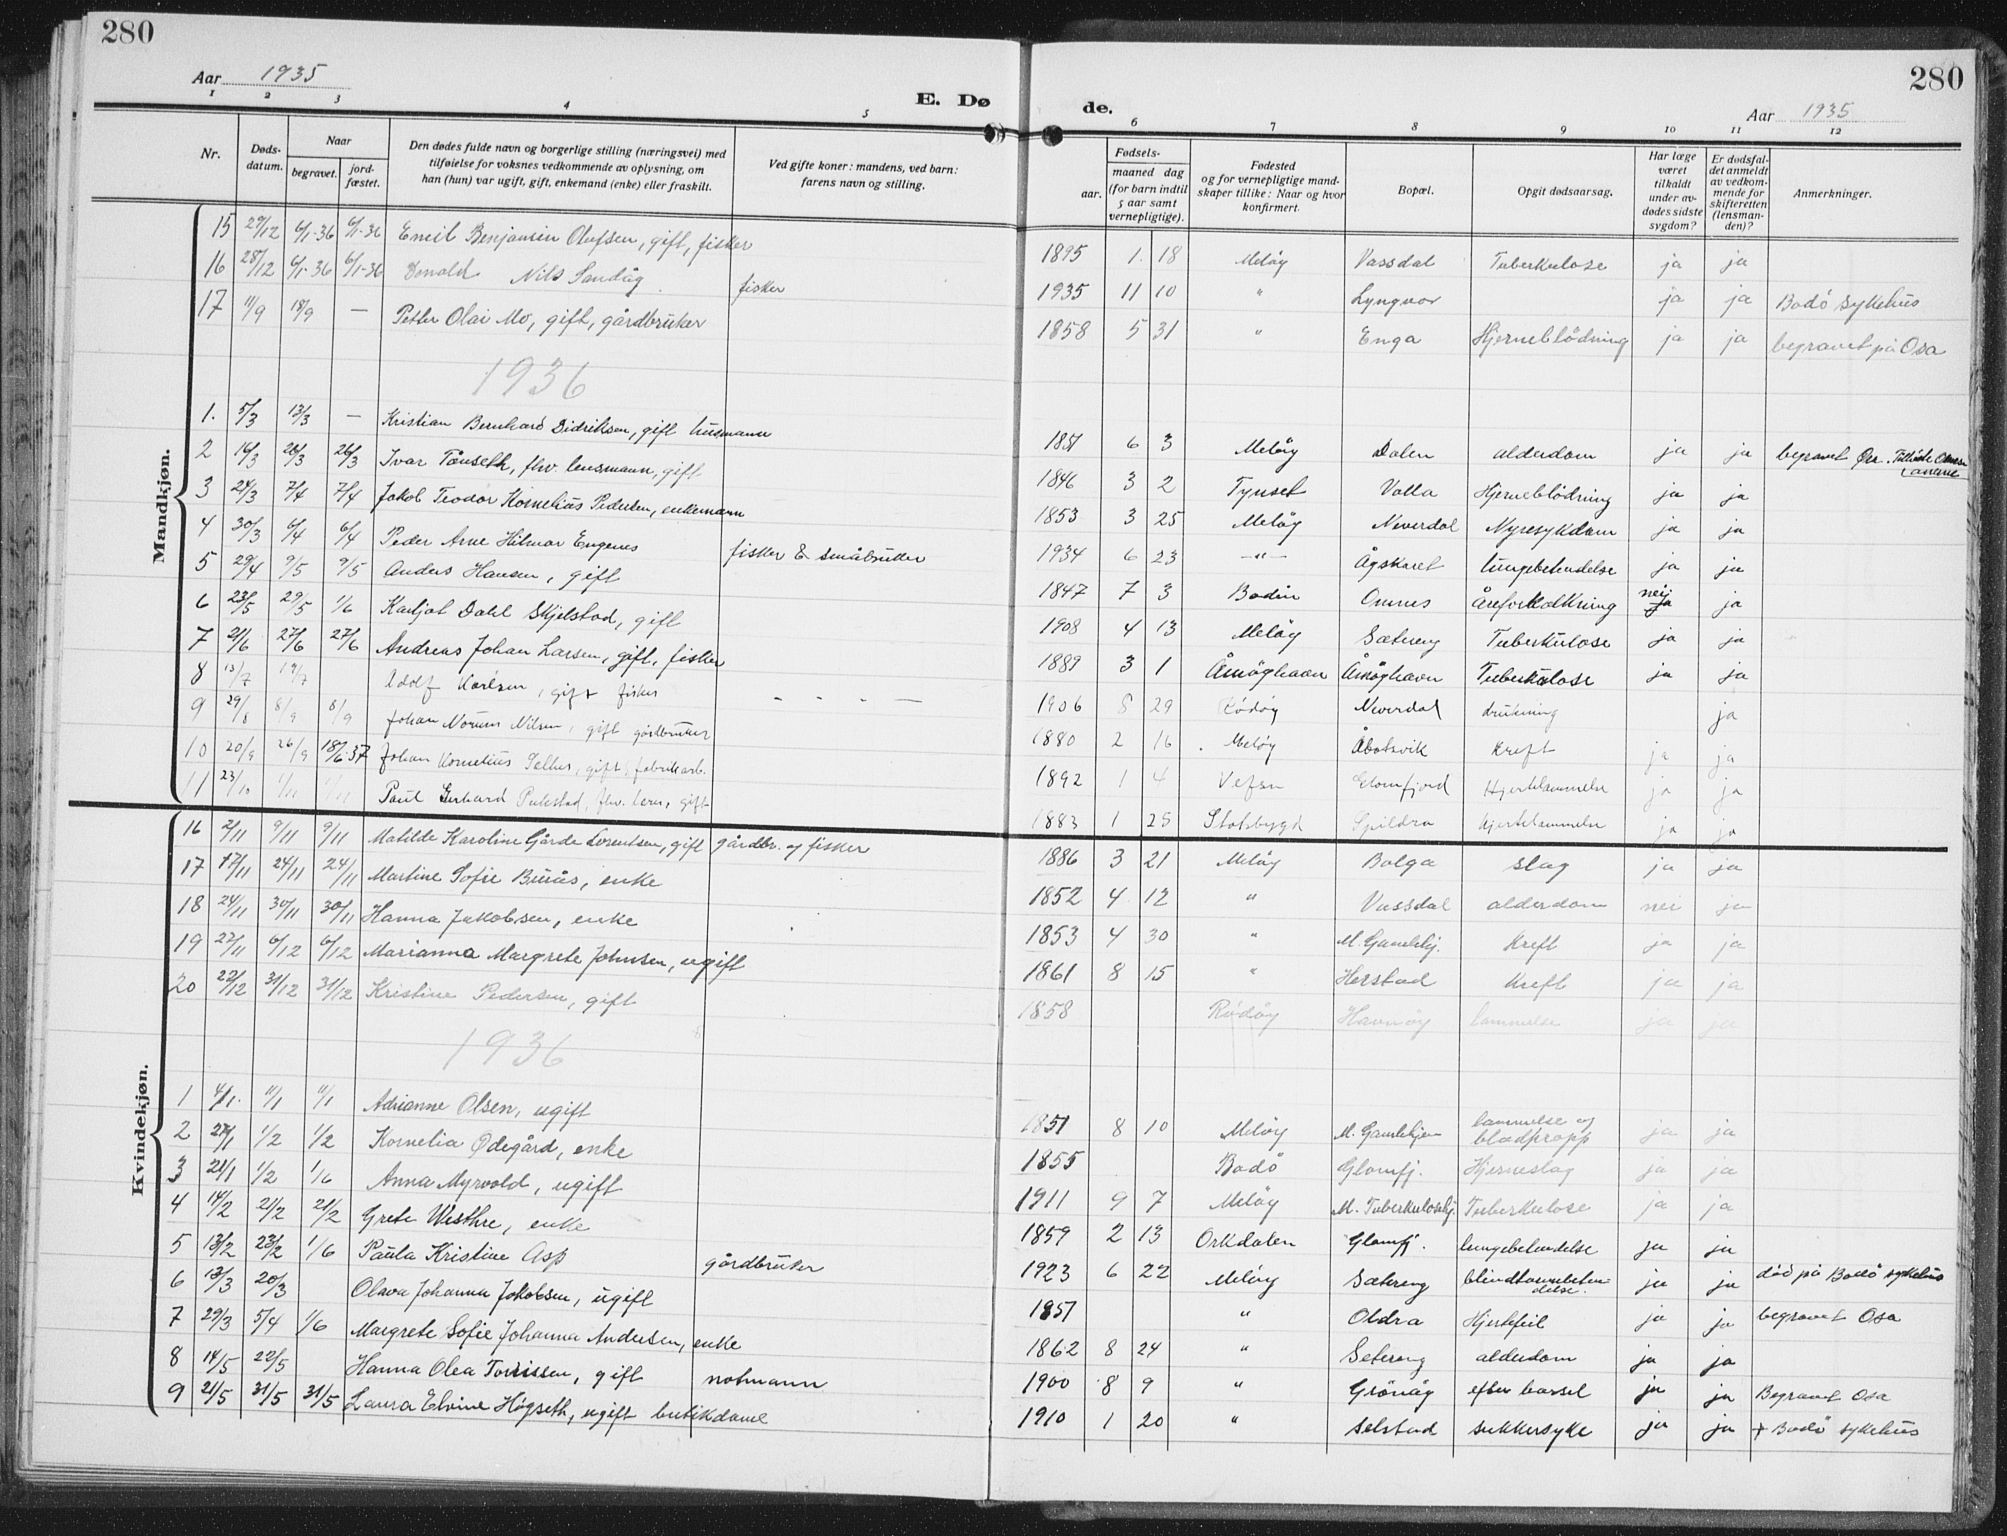 280
280
Aar 1935
Aar 1935
E. Dø de.
1 2 3 4 5 6 7 8 9 10 11 12
Nr. Døds-datum. Naar begravet. jord-fæstet. Den dødes fulde navn og borgerlige stilling (næringsvei) med tilføielse for voksnes vedkommende av oplysning, om han (hun) var ugift, gift, enkemand (enke) eller fraskilt. Ved gifte koner: mandens, ved barn: farens navn og stilling. Fødsels- aar. maaned dag (for barn indtil 5 aar samt vernepligtige). Fødested og for vernepligtige mand-skaper tillike: Naar og hvor konfirmert. Bopæl. Opgit dødsaarsag. Har læge været tilkaldt under av-dødes sidste sygdom? Er dødsfal-det anmeldt av vedkom-mende for skifteretten (lensman-den)? Anmerkninger.
Mandkjøn.
15 29/12 6/1-36 6/1-36 Emil Benjamin Olufsen, gift, fisker 1895 1. 18 Meløy Vassdal Tuberkulose ja ja
16 28/12 6/1-36 6/1-36 Donald Nils Sandåg. fisker 1935 11 10 " Lyngvær ja ja Bodö sykehus
17 11/9 18/9 — Petter Olai Mo, gift, gårdbruker 1858 5 31 " Enga Hjerneblödning ja ja begravet på Osa
1936
1. 5/3 13/3 — Kristian Bernhard Didriksen, gift husmann 1851 6 3 Meløy Dalen alderdom ja ja begravet Ør.
2 16/3 26/3 26/3 Ivar Tönseth, fhv. lensmann, gift 1846 3 2 Tynset Valla Hjerneblödning ja ja
3 24/3 7/4 7/4 Jakob Teodor Kornelius Pedersen, enkemann 1853 3 25 Meløy Neverdal Nyresykdom ja ja
4 30/3 6/4 6/4 Peder Arne Hilmar Engenes fisker & småbruker 1934 6 23 —"— Ågskaret lungebetendelse ja ja
5 29/4 9/5 9/5 Anders Hansen, gift 1847 7 3 Bodin Ornes Åreforkalkning nei ja ja
6 23/5 29/5 1/6 Karljot Dahl Skjelstad, gift 1908 4 13 Meløy Sætreng Tuberkulose ja ja
7 21/6 27/6 27/6 Andreas Johan Larsen, gift, fisker 1889 3 1 Åmöyhavn Åmöyhavn Tuberkulose ja ja
8 13/7 19/7 Adolf Karlsen, gift fisker — — — — 1906 8 29 Rödöy Neverdal drukning ja
9 29/8 8/9 8/9 Johan Norum Nilsen, gift gårdbruker 1880 2 16 Meløy Åbotsvik Kreft ja ja
10 20/9 26/9 18/6-37 Johan Kornelius gift, fabrikarb. 1892 1 4 Vefsn Glomfjord Hjertelammelse ja ja
11 23/10 1/11 1/11 Paul Gerhard fhv. lærer, gift 1883 1 25 Stotsbygd Spildra hjertelammelse ja ja
Kvindekjøn.
16 2/11 9/11 9/11 Matilde Karoline Gårde Lorentsen, gift gårdbr. og fisker 1886 3 21 Meløy Bolga slag ja ja
17 17/11 24/11 24/11 Martine Sofie Buås, enke 1852 4 12 " Vassdal alderdom nei ja
18 24/11 30/11 30/11 Hanna Jakobsen, enke 1853 4 30 " M. Gamlehj. Kreft ja ja
19 27/11 6/12 6/12 Marianna Margrete Johnsen, ugift 1861 8 15 " Herstad Kreft ja ja
20 22/12 31/12 31/12 Kristine Pedersen, gift 1858 Rödöy Havnöy lammelse ja ja
1936
1 4/1. 11/1 11/1 Adrianne Olsen, ugift 1851 8 10 Meløy M. Gamlehjem lammelse og blodpropp ja ja
2 27/1 1/2 1/2 Kornelia Ødegård, enke 1855 Bodö Glomfj. Hjerneslag ja ja
3 21/1 1/2 1/6 Anna Myrvold, ugift 1911 9 7 Meløy M. Tuberkulosehj. Tuberkulose ja ja
4 14/2 21/2 21/2 Grete Westhre, enke 1859 2 13 Orkdalen Glomfj. lungebetendelse ja ja
5 13/2 23/2 1/6 Paula Kristine Asp gårdbruker 1923 6 22 Meløy Sætreng blindtarmbeten-delse. ja ja död på Bodö sykehus
6 13/3 20/3 Olava Johanna Jakobsen, ugift 1857 " Oldra Hjertefeil ja ja begravet Osa
7 29/3 5/4 1/6 Margrete Sofie Johanna Andersen, enke 1862 8 24 " Setreng alderdom ja ja
8 14/5 22/5 Hanna Olea Torrissen, gift notmann 1900 8 9 " Grönåy efter barsel ja ja Begravet Osa
9 21/5 31/5 31/5 Laura Elvine Högseth, ugift butikdame 1910 1 20 " Selstad sukkersyke ja ja + Bodö sykehus